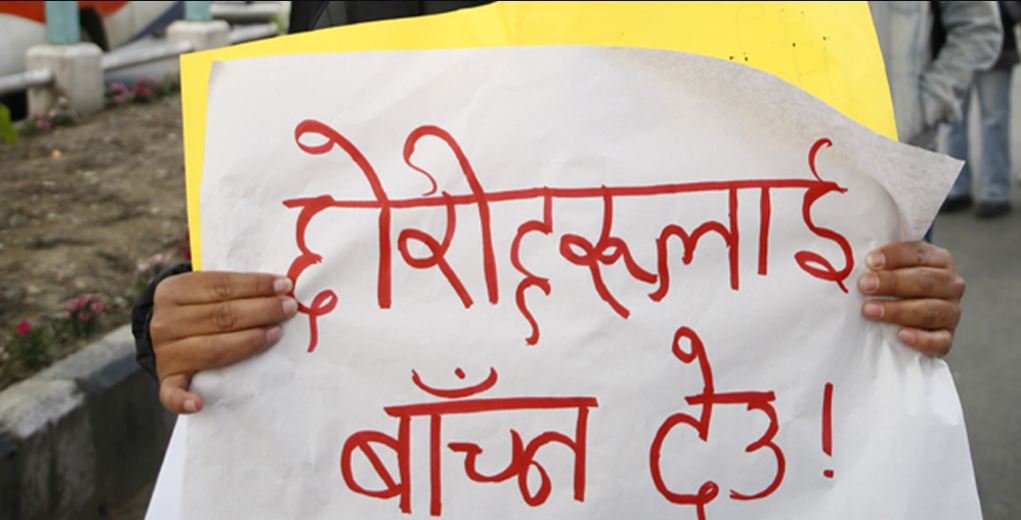 छोरीहरूलाई
बाँच्न देउ!